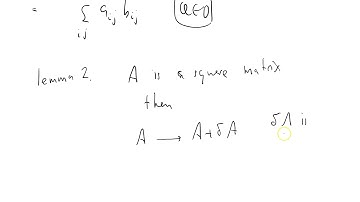 = Σ aij bij
ij
lemma 2. A is a square matrix
then
A → A + δA δA is